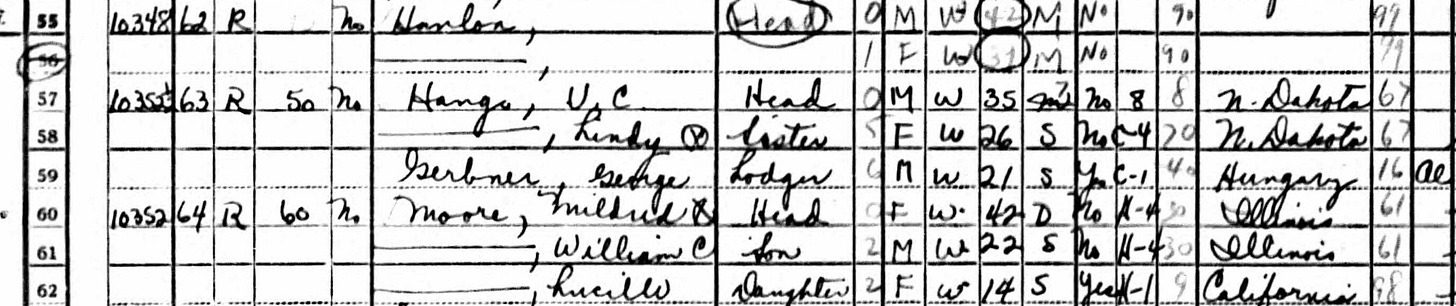 55 10348 62 R No Hanlon, Head 0 M W 42 M No 90 99
56 , 1 F W 31 M No 90 99
57 63 R 50 No Hango, V. C. Head 0 M W 35 No 8 8 N. Dakota 67
58 , Lindy Ⓧ Sister 5 F W 26 S No C-4 20 N. Dakota 67
59 Gerbner, George Lodger 6 M W 21 S Yes C-1 40 Hungary 16 al
60 10352 64 R 60 No Moore, Mildred Head 0 F W 42 D No H-4 30 Illinois 61
61 , William C Son 2 M W 22 S No H-4 30 Illinois 61
62 , Lucille Daughter 2 F W 14 S Yes H-1 9 California 98